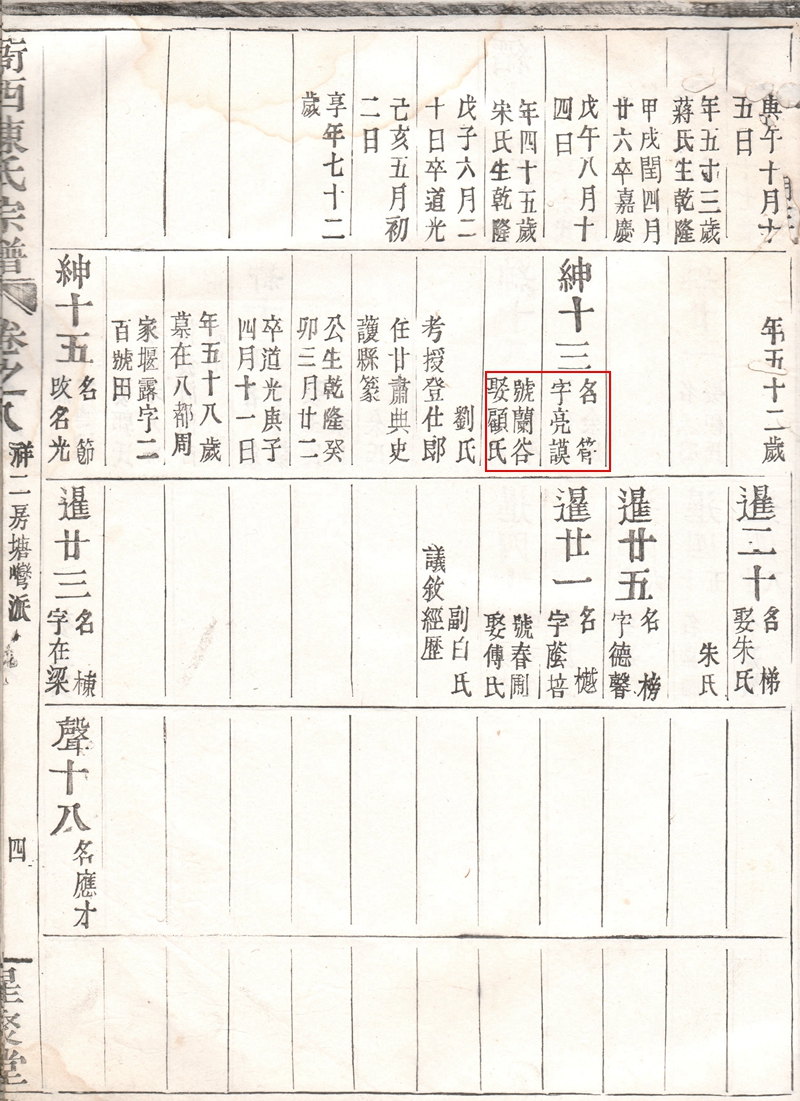 庚午十月十
五日
年五寸三歲
蔣氏生乾隆
甲戌閏四月
廿六卒嘉慶
戊午八月十
四日
年四十五歲
宋氏生乾隆
戊子六月二
十日卒道光
己亥五月初
二日
享年七十二
歲
年五十二歲
紳十三
名管
字亮謨
號蘭谷
娶顧氏
劉氏
考授登仕郎
任甘肅典史
護縣篆
公生乾隆癸
卯三月廿二
卒道光庚子
四月十一日
年五十八歲
墓在八都周
家堰露字二
百號田
紳十五
名節
改名光
暹二十
名梯
娶朱氏
朱氏
暹廿五
名榜
字德馨
暹廿一
名樾
字蔭培
號春圃
娶傅氏
副白氏
議敘經歷
暹廿三
名棟
字在梁
聲十八
名應才
衕西陳氏宗譜
卷之八
祥二房塘灣派
四
星聚堂